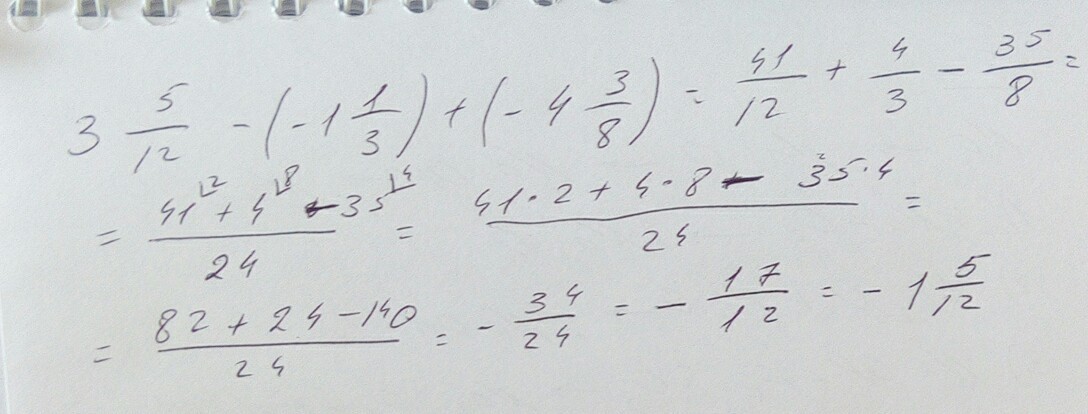 3 5/12 - (-1 1/3) + (-4 3/8) = 41/12 + 4/3 - 35/8 =
= (41⌊2 + 4⌊8 - 35⌊4)/24 = (41·2 + 4·8 - 35·4)/24 =
= (82 + 24 - 140)/24 = - 34/24 = - 17/12 = - 1 5/12